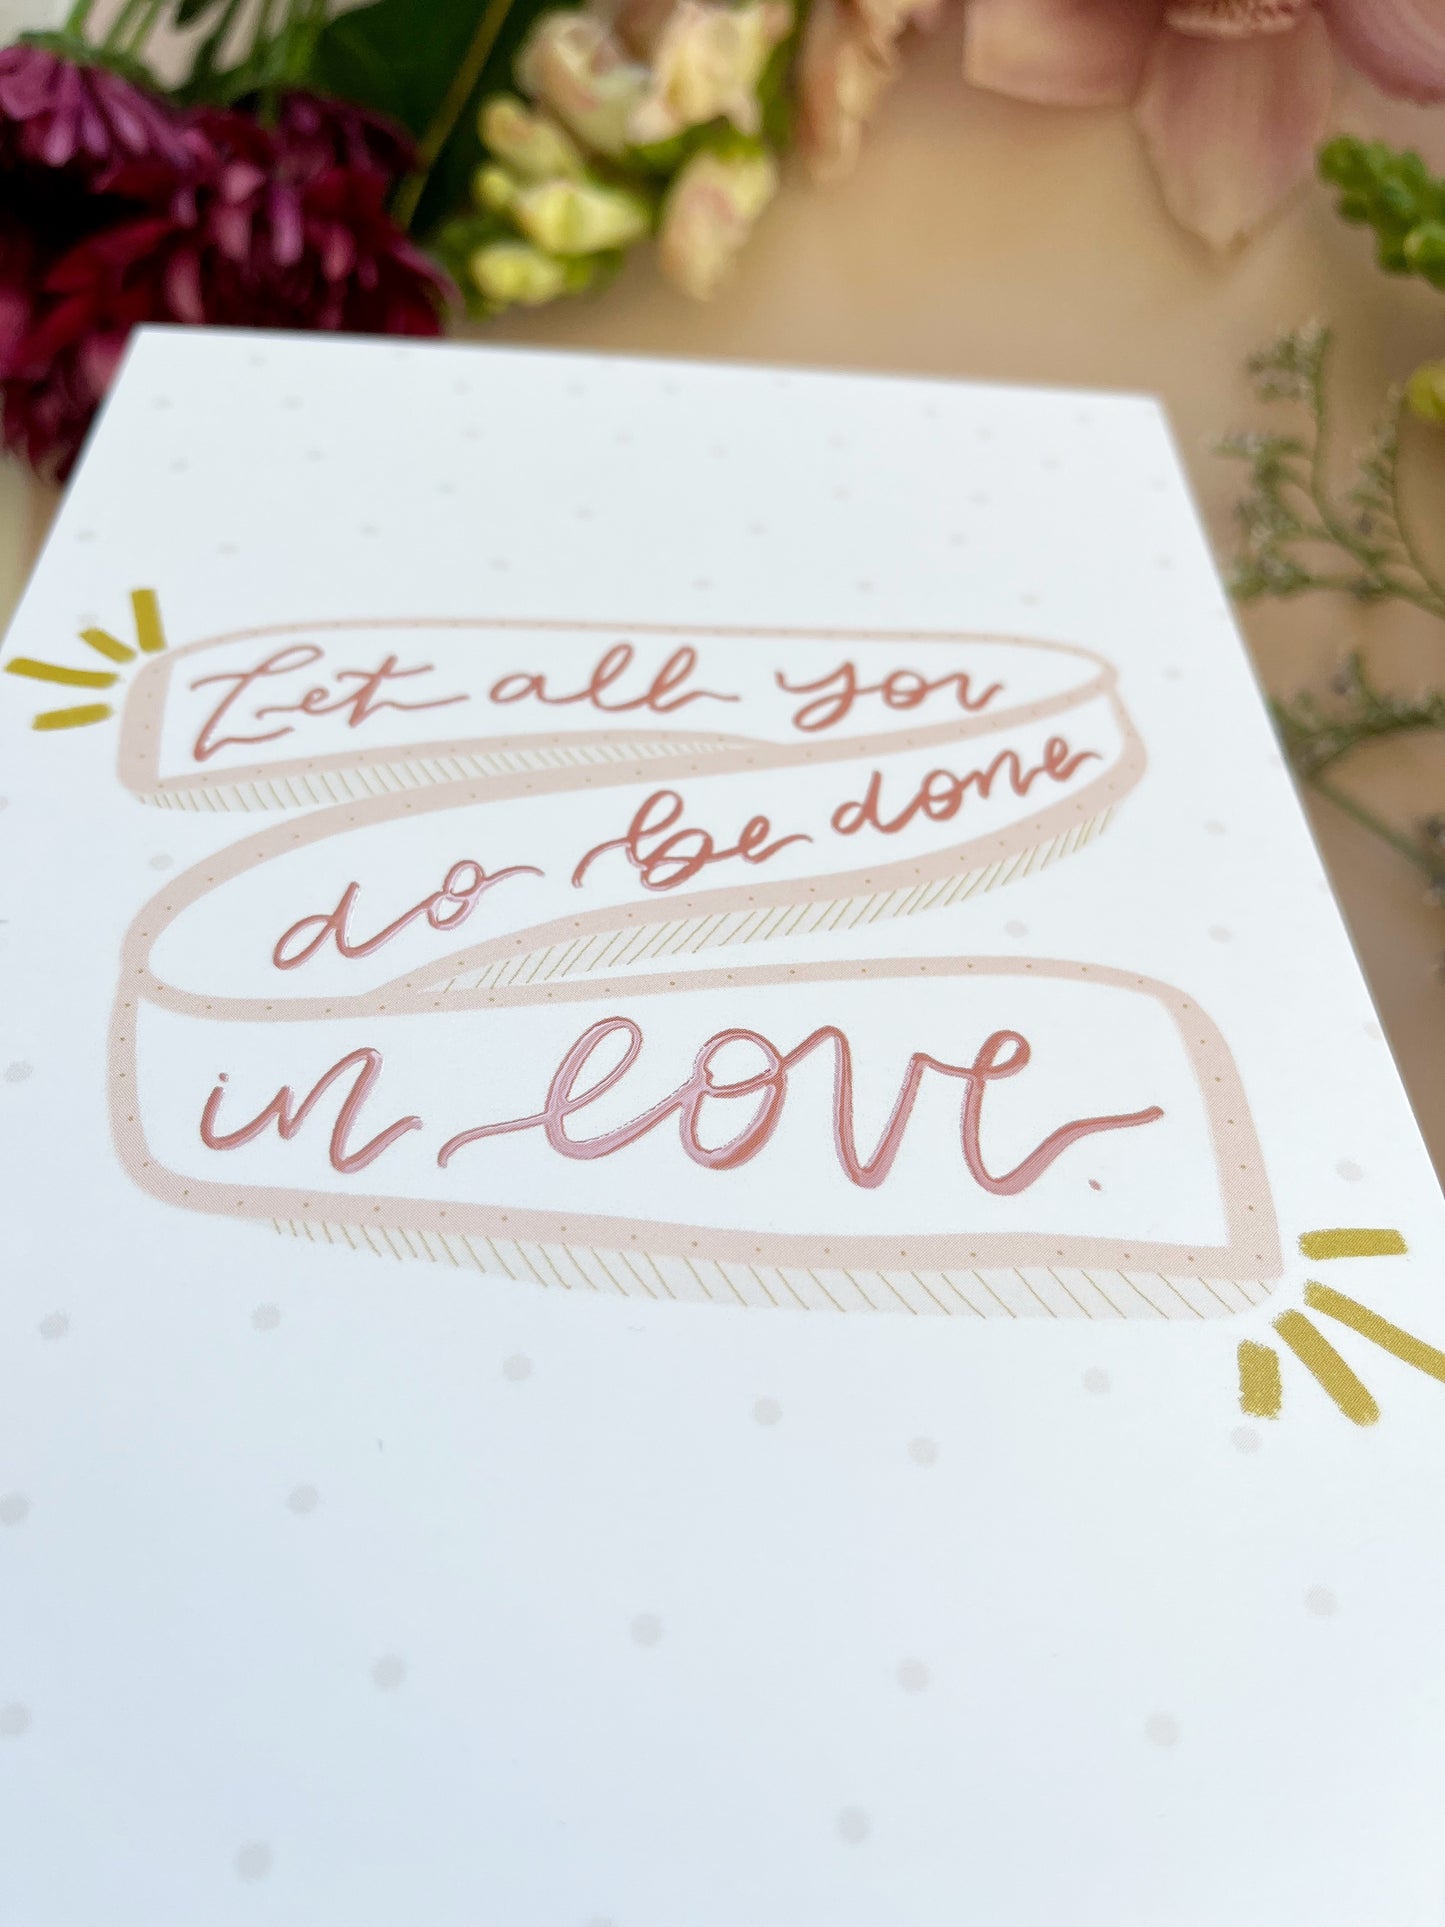 Let all you
do be done
in love.